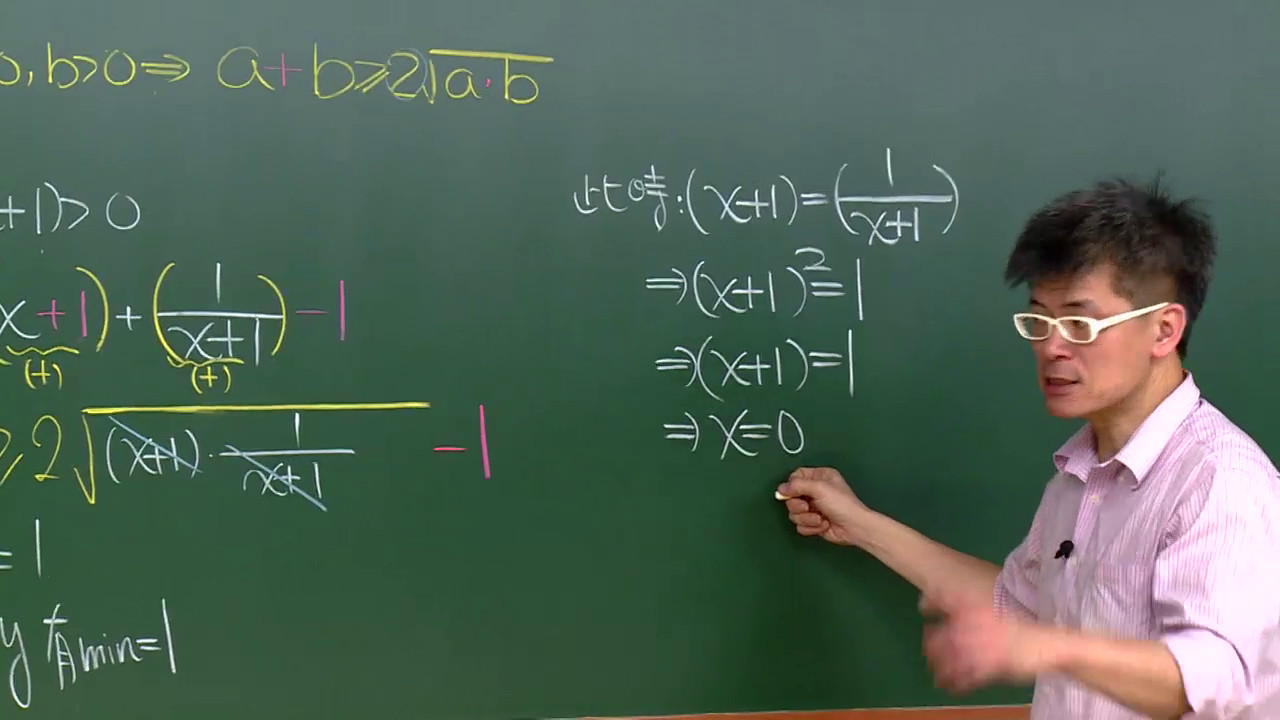 0, b>0 ⇒ a+b≥2√a·b
+1)>0
x+1)+(1/(x+1))-1
(+) (+)
≥2√(x+1)·1/(x+1) -1
=1
y有min=1
此時:(x+1)=(1/(x+1))
⇒(x+1)²=1
⇒(x+1)=1
⇒x=0